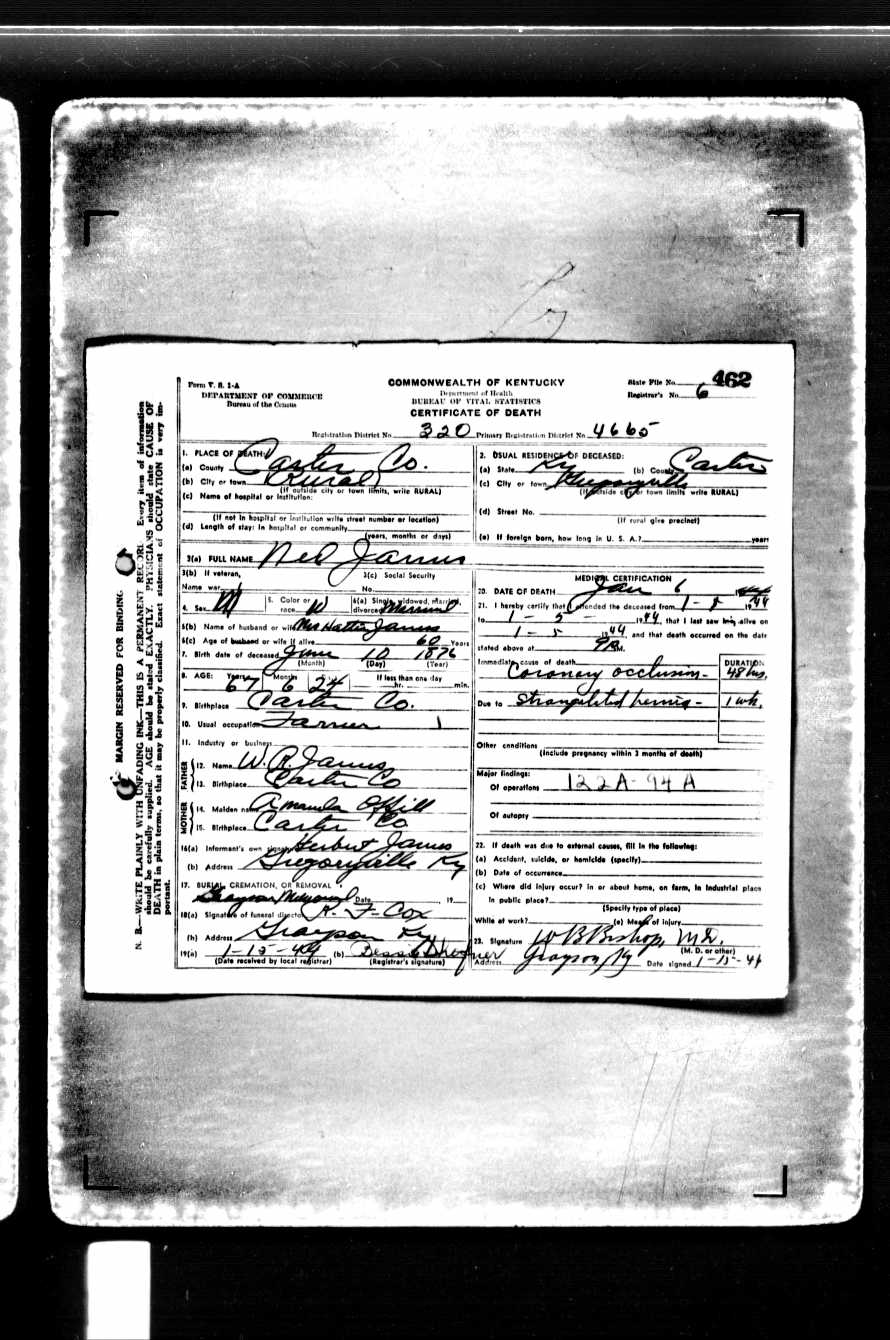 Form V. S. 1-A
DEPARTMENT OF COMMERCE
Bureau of the Census
COMMONWEALTH OF KENTUCKY
Department of Health
BUREAU OF VITAL STATISTICS
CERTIFICATE OF DEATH
State File No. 462
Registrar's No. 6
Registration District No. 320 Primary Registration District No. 4665
1. PLACE OF DEATH:
(a) County Carter Co.
(b) City or town Rural
(If outside city or town limits, write RURAL)
(c) Name of hospital or institution:
(If not in hospital or institution write street number or location)
(d) Length of stay: In hospital or community
(years, months or days)
2. USUAL RESIDENCE OF DECEASED:
(a) State Ky (b) County Carter
(c) City or town Gregoryville
(If outside city or town limits write RURAL)
(d) Street No.
(If rural give precinct)
(e) If foreign born, how long in U. S. A.? years
3(a) FULL NAME Ned James
3(b) If veteran,
Name war
3(c) Social Security
No.
4. Sex M
5. Color or race W
6(a) Single, widowed, married, divorced Married
6(b) Name of husband or wife Mrs Hattie James
6(c) Age of husband or wife if alive 60 Years
7. Birth date of deceased June 10 1876
(Month) (Day) (Year)
8. AGE: Years Months If less than one day
67 6 24 hr. min.
9. Birthplace Carter Co.
10. Usual occupation Farmer 1
11. Industry or business
FATHER
12. Name W. R. James
13. Birthplace Carter Co
MOTHER
14. Maiden name Amanda Offill
15. Birthplace Carter Co
16(a) Informant's own signature Herbert James
(b) Address Gregoryville Ky
17. BURIAL, CREMATION, OR REMOVAL
Grayson Date 19
18(a) Signature of funeral director R. F. Cox
(b) Address Grayson Ky
19(a) 1-15-44 (b)
(Date received by local registrar) (Registrar's signature)
MEDICAL CERTIFICATION
20. DATE OF DEATH Jan 6 19 44
21. I hereby certify that I attended the deceased from 1-5
to 1-5- 1944, that I last saw him alive on
1-5 1944 and that death occurred on the date
stated above at M.
Immediate cause of death
Coronary occlusion-
DURATION
48 hrs.
Due to Strangulated hernia- 1 wk.
Other conditions
(Include pregnancy within 3 months of death)
Major findings:
Of operations 122A-94A
Of autopsy
22. If death was due to external causes, fill in the following:
(a) Accident, suicide, or homicide (specify)
(b) Date of occurrence
(c) Where did injury occur? In or about home, on farm, in industrial place
in public place?
(Specify type of place)
While at work? (e) Means of injury
23. Signature W B Bishop, M.D.
(M. D. or other)
Address Grayson, Ky Date signed 1-15-44
MARGIN RESERVED FOR BINDING
N. B.—WRITE PLAINLY WITH UNFADING INK—THIS IS A PERMANENT RECORD. Every item of information
should be carefully supplied. AGE should be stated EXACTLY. PHYSICIANS should state CAUSE OF
DEATH in plain terms, so that it may be properly classified. Exact statement of OCCUPATION is very im-
portant.